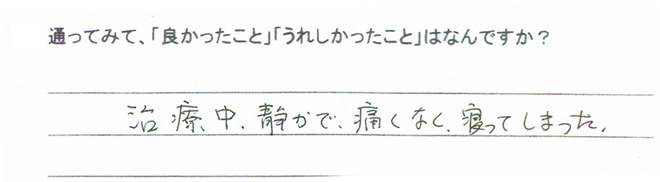 通ってみて、「良かったこと」「うれしかったこと」はなんですか？
治療中、静かで、痛くなく、寝ってしまった。